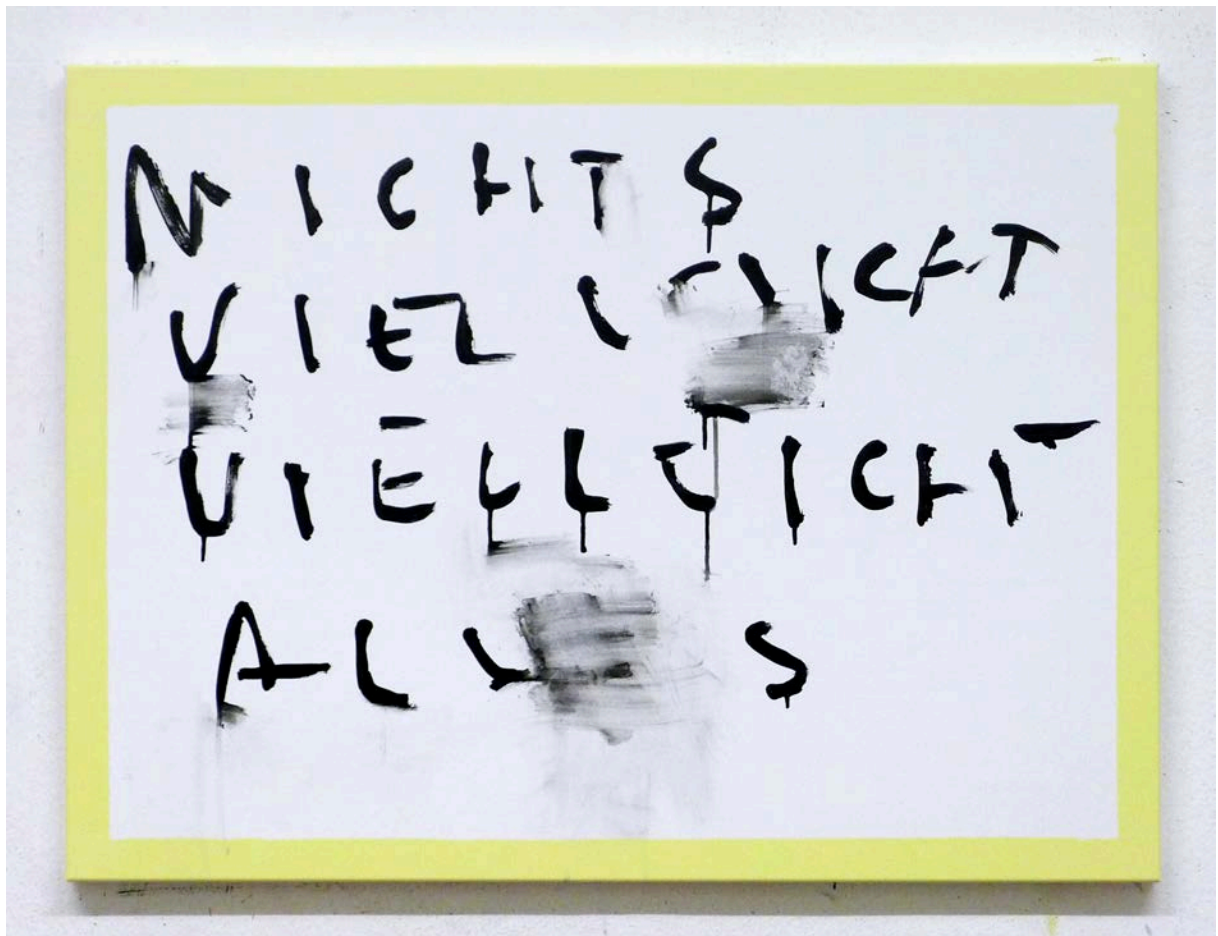 NICHTS
VIELLEICHT
VIELLEICHT
ALLES